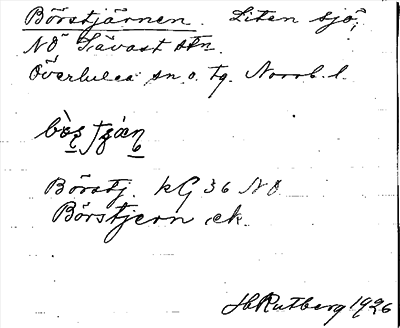 Börstjärnen. Liten sjö,
NO Sävast stn.
Överluleå sn o. tg. Norrb. l.
Börstj. kG 36 NO
Börstjern ek.
H Rutberg 1926